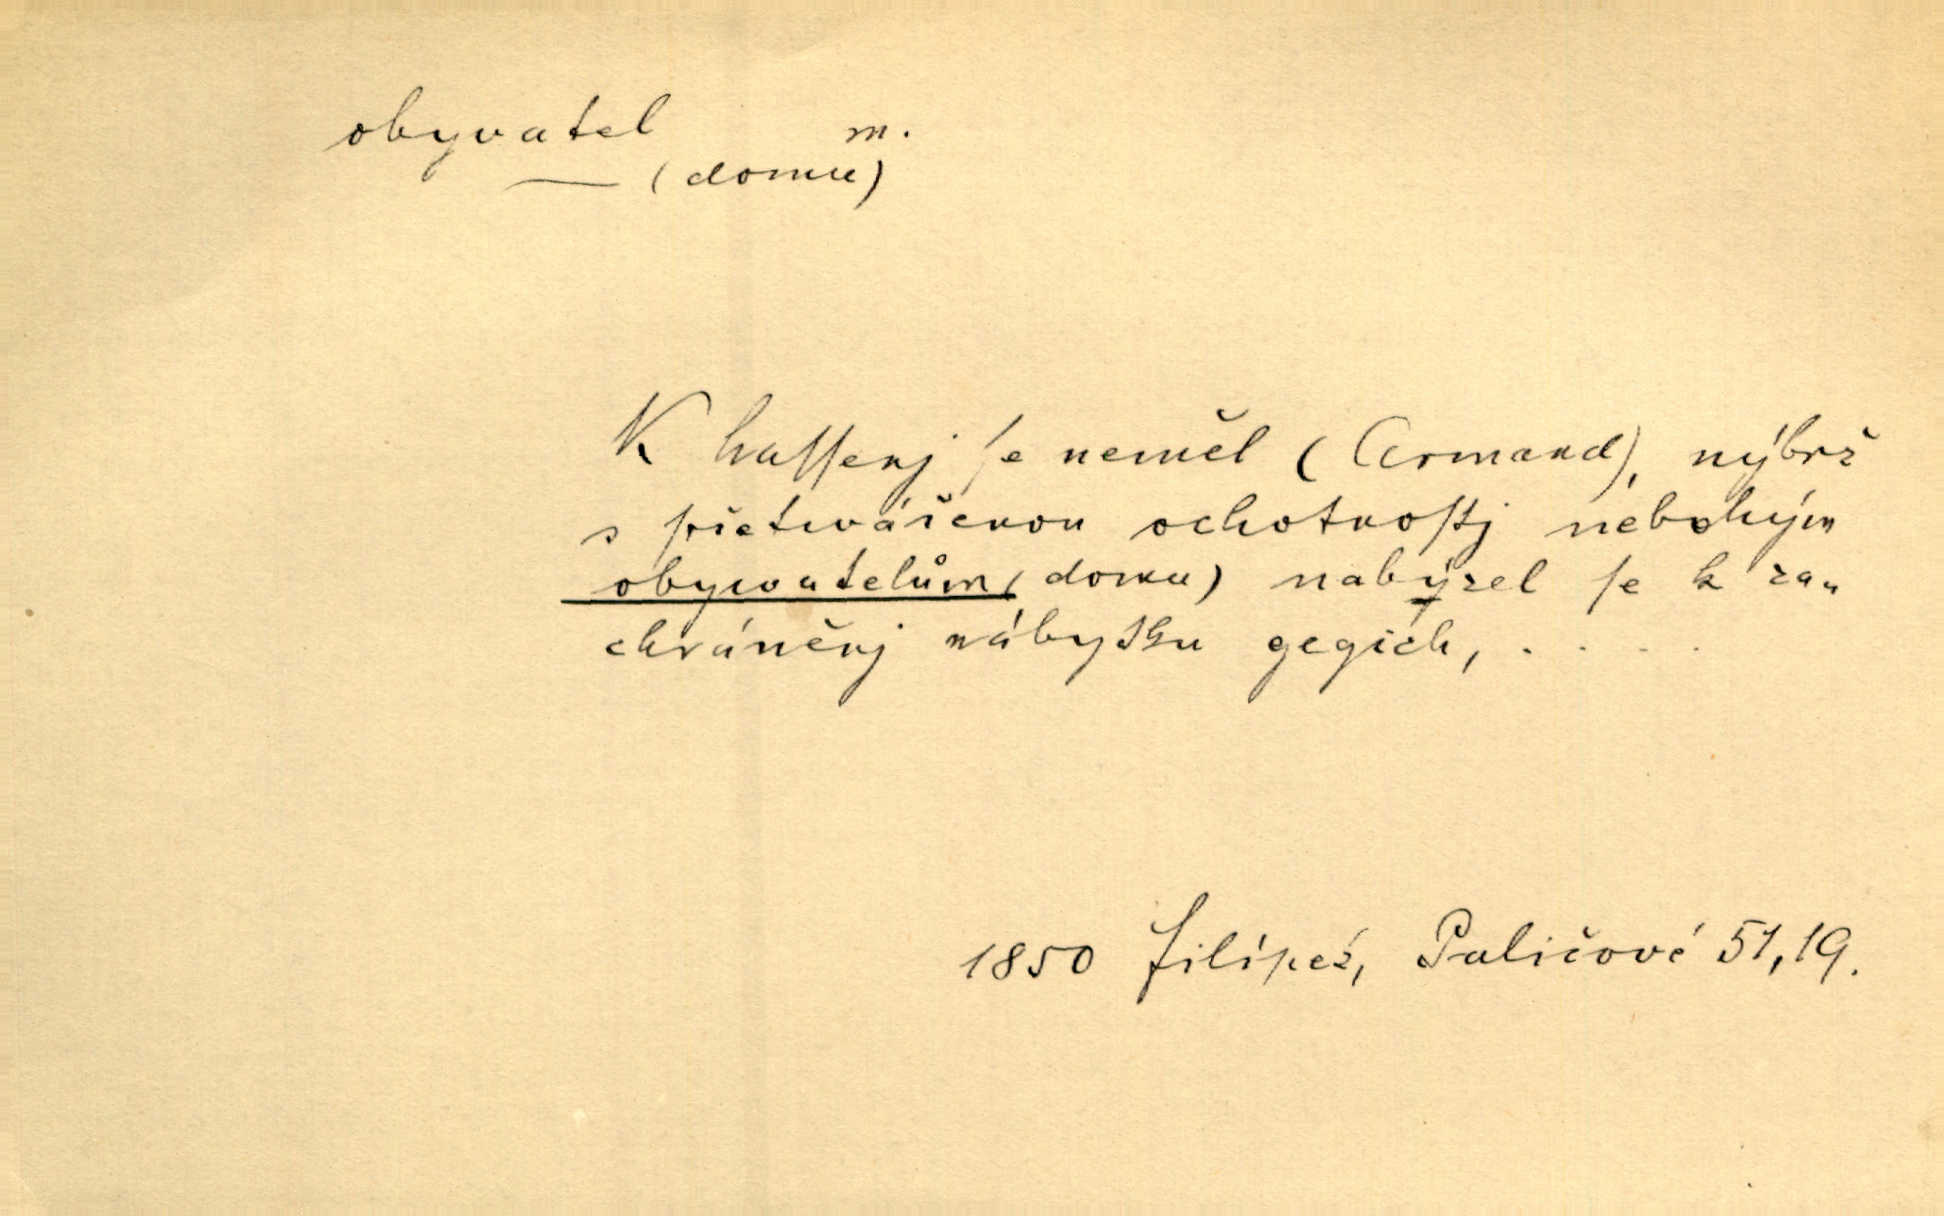 obyvatel m.
— (domu)
K haſſenj ſe neměl (Armand), nýbrž
s přetwářenou ochotnoſtj nebohým
obywatelům (domu) nabýzel ſe k za„
chráněnj nábytku gegich, . . . .
1850 Filípek, Paličové 51,19.